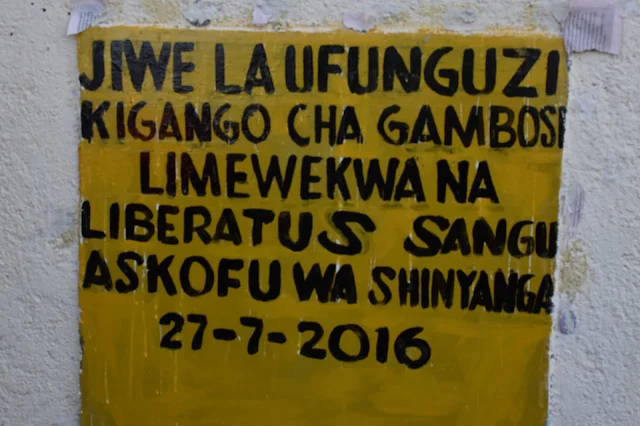 JIWE LA UFUNGUZI
KIGANGO CHA GAMBOSI
LIMEWEKWA NA
LIBERATUS SANGU
ASKOFU WA SHINYANGA
27-7-2016